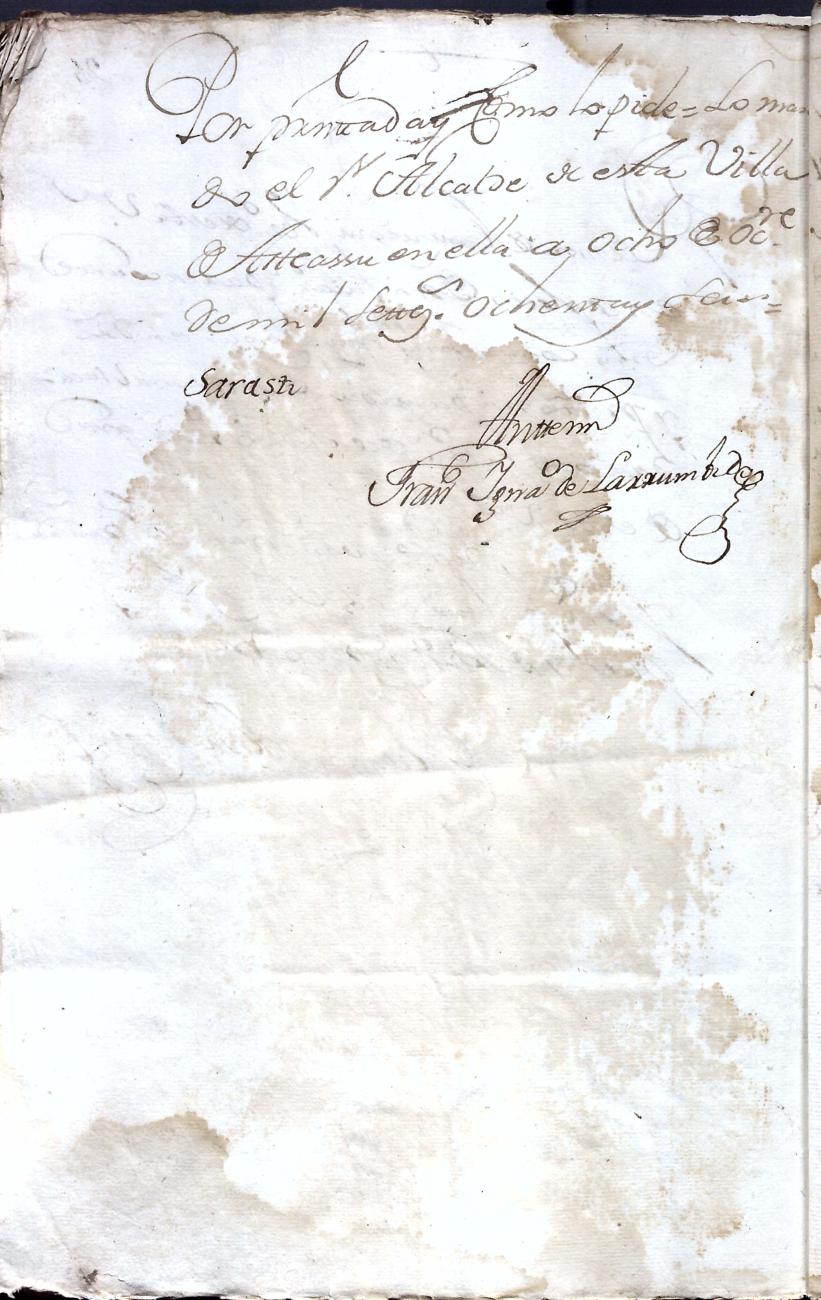 Por presentada y Como lo pide = Lo man
do el Sr. Alcalde de esta Villa
de Atteassu en ella a ocho de Ocre
de mil settg.s ochenta y seis =
Sarasti
Anttemi
Franco Igno de Larrumbide